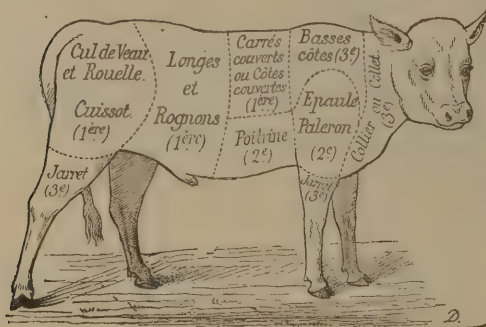 Cul de Veau
et Rouelle.
Cuissot.
(1ère)
Jarret
(3e)
Longes
et
Rognons
(1ère)
Carrés
couverts
ou Côtes
couvertes
(1ère)
Poitrine
(2e)
Basses
côtes (3e)
Epaule
Paleron
(2e)
Jarret
(3e)
Collier ou Collet
(3e)
D.